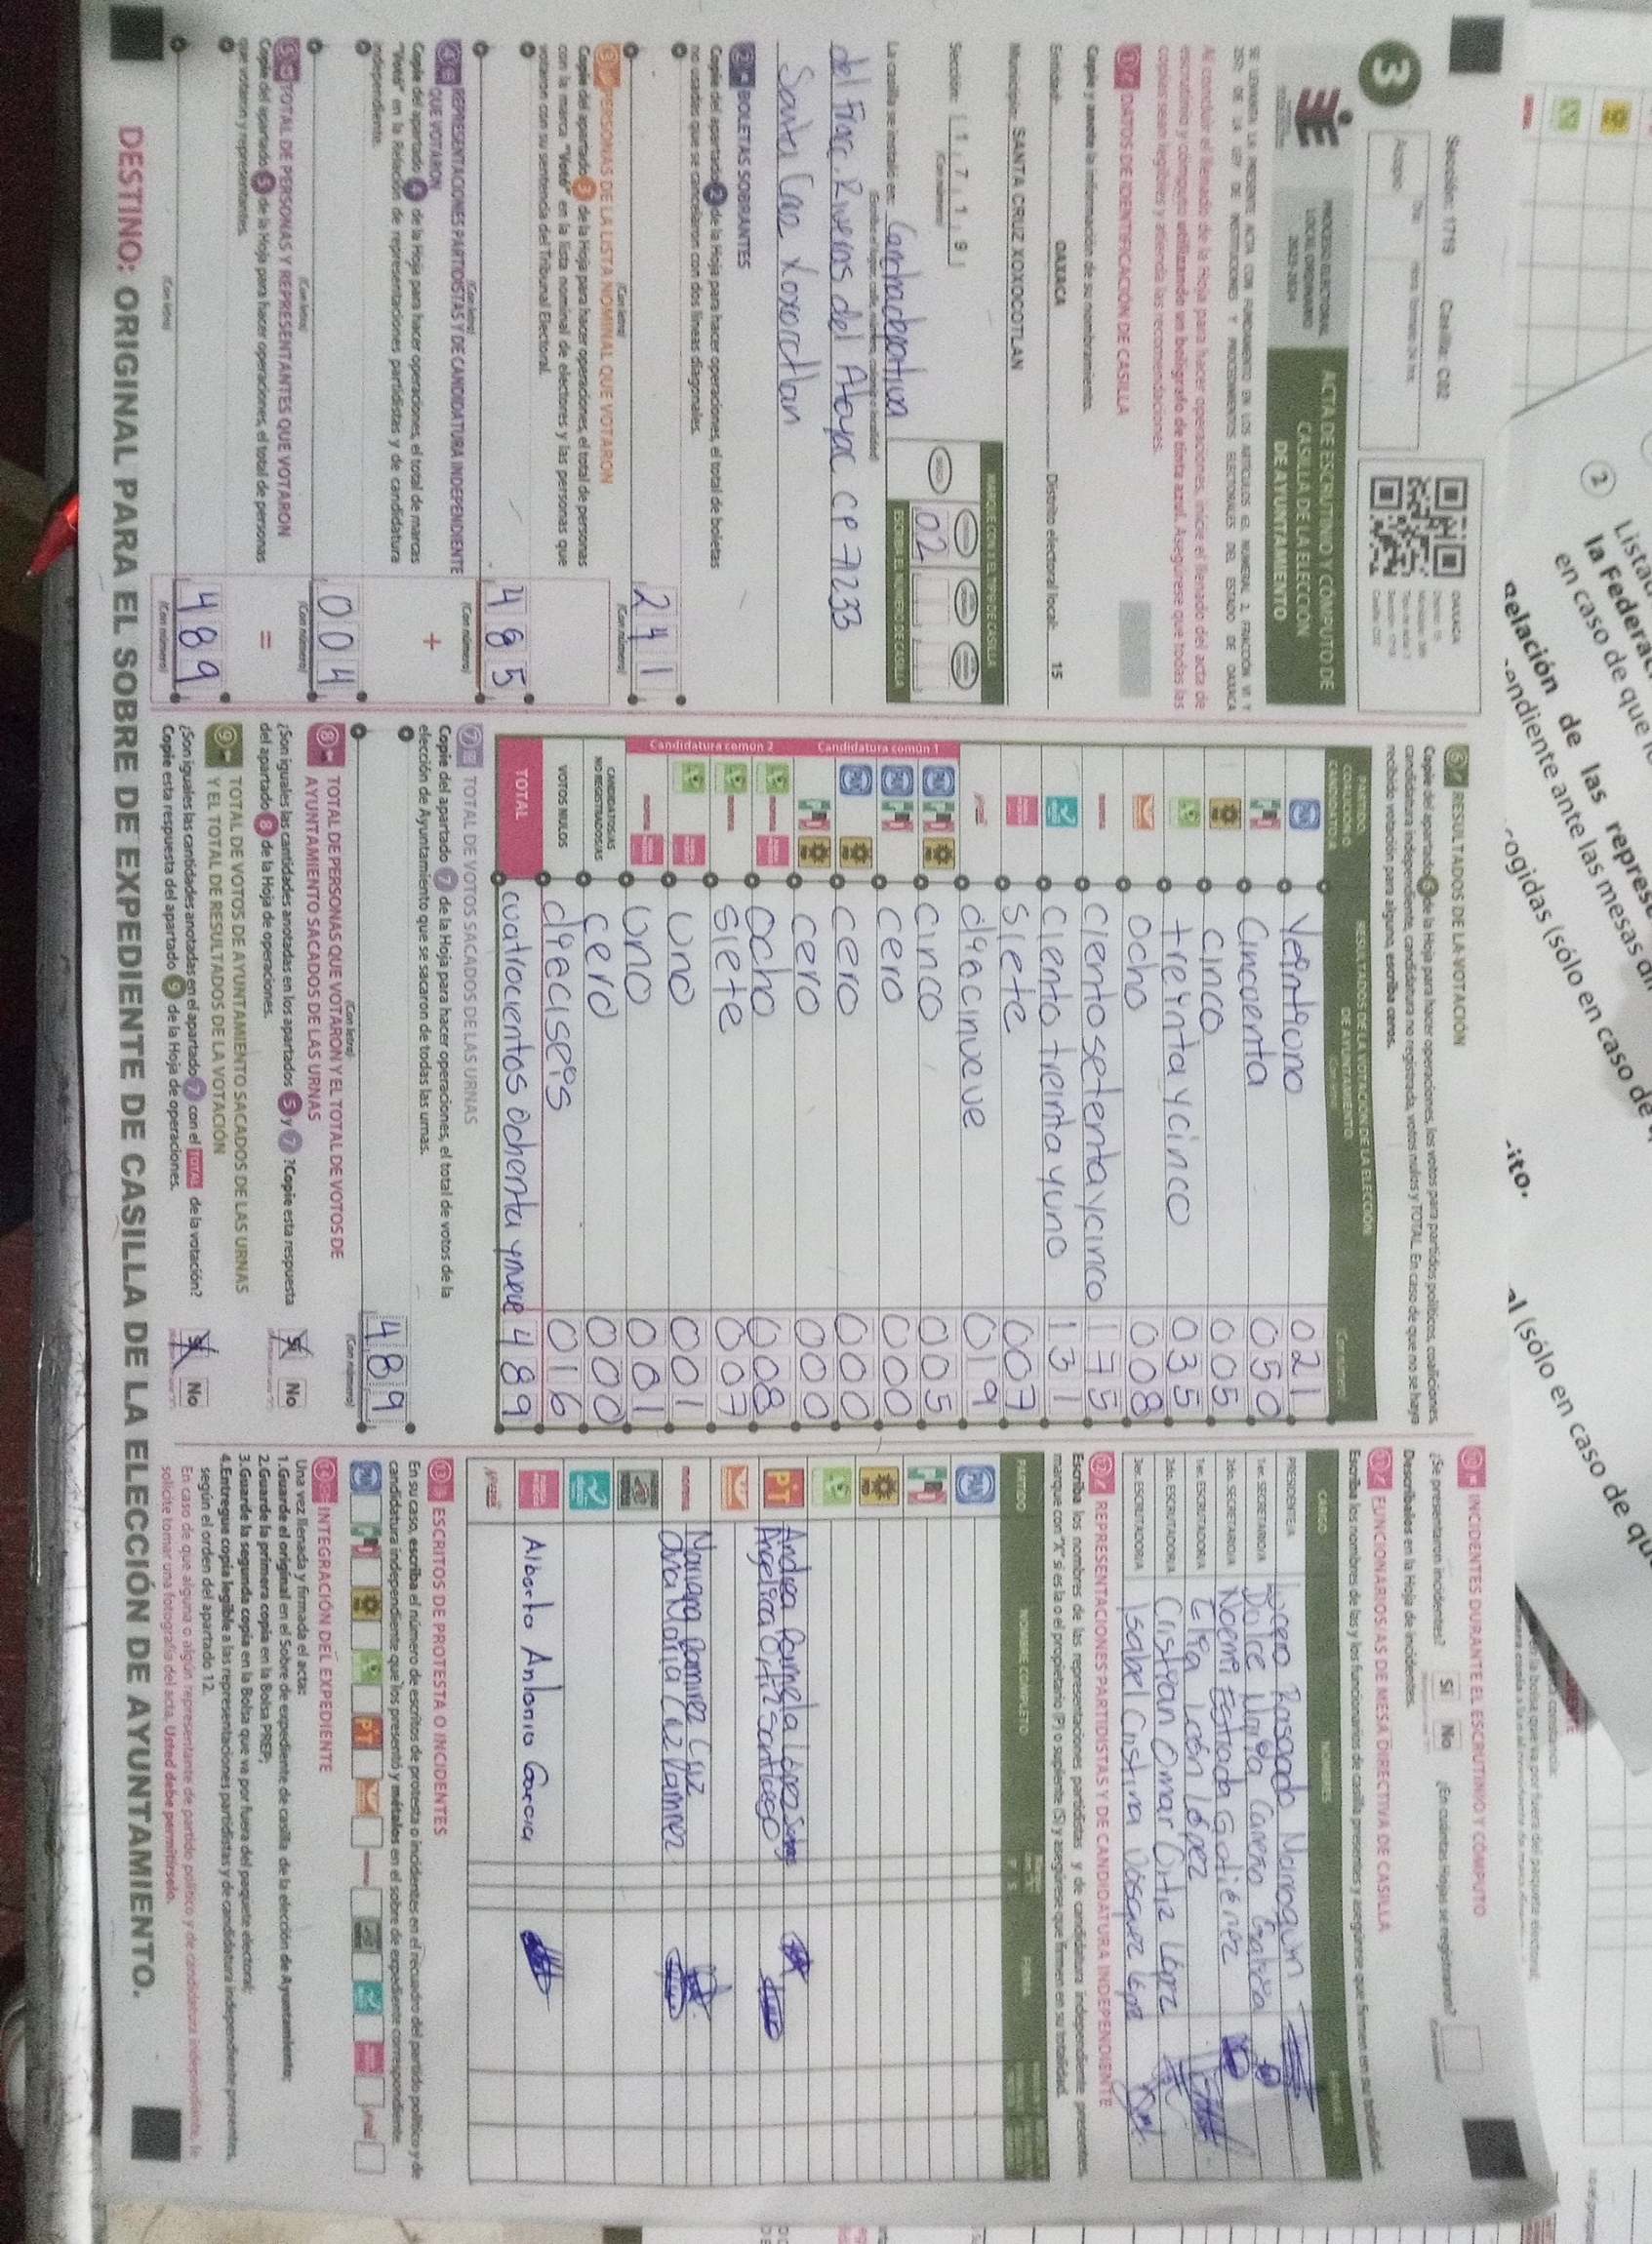 Sección: 1719 Casilla: C02
3
PROCESO ELECTORAL
LOCAL ORDINARIO
2023-2024
ACTA DE ESCRUTINIO Y CÓMPUTO DE
CASILLA DE LA ELECCIÓN
DE AYUNTAMIENTO
Al concluir el llenado de la Hoja para hacer operaciones, inicie el llenado del acta de
escrutinio y cómputo utilizando un bolígrafo de tinta azul. Asegúrese que todas las
copias sean legibles y atienda las recomendaciones.
1 DATOS DE IDENTIFICACIÓN DE CASILLA
Copie y anote la información de su nombramiento.
Entidad: OAXACA Distrito electoral local: 15
Municipio: SANTA CRUZ XOXOCOTLAN
Sección: 1 7 1 9
(Con número)
MARQUE CON X EL TIPO DE CASILLA
ESCRIBA EL NÚMERO DE CASILLA
02
La casilla se instaló en: Canchadeportiva
del Fracc. Riveras del Atoyac CP 71233
Santa Cruz Xoxocotlan
2 BOLETAS SOBRANTES
Copie del apartado 2 de la Hoja para hacer operaciones, el total de boletas
no usadas que se cancelaron con dos líneas diagonales.
241
(Con letra) (Con número)
3 PERSONAS DE LA LISTA NOMINAL QUE VOTARON
Copie del apartado 3 de la Hoja para hacer operaciones, el total de personas
con la marca "Votó" en la lista nominal de electores y las personas que
votaron con su sentencia del Tribunal Electoral.
485
(Con letra) (Con número)
4 REPRESENTACIONES PARTIDISTAS Y DE CANDIDATURA INDEPENDIENTE
QUE VOTARON
+
Copie del apartado 4 de la Hoja para hacer operaciones, el total de marcas
"Votó" en la Relación de representaciones partidistas y de candidatura
independiente.
004
(Con letra) (Con número)
5 TOTAL DE PERSONAS Y REPRESENTANTES QUE VOTARON
=
Copie del apartado 5 de la Hoja para hacer operaciones, el total de personas
que votaron y representantes.
489
(Con letra) (Con número)
6 RESULTADOS DE LA VOTACIÓN
Copie del apartado 6 de la Hoja para hacer operaciones, los votos para partidos políticos, coaliciones,
candidatura independiente, candidatura no registrada, votos nulos y TOTAL. En caso de que no se haya
recibido votación para alguno, escriba ceros.
PARTIDO, COALICIÓN O CANDIDATO/A
RESULTADOS DE LA VOTACIÓN DE LA ELECCIÓN
DE AYUNTAMIENTO
PAN Veintiuno 021
Cincuenta 050
cinco 005
treinta y cinco 035
ocho 008
morena ciento setenta y cinco 175
ciento treinta y uno 131
Siete 007
diecinueve 019
Candidatura común 1
cinco 005
cero 000
cero 000
cero 000
Candidatura común 2
Ocho 008
siete 007
uno 001
uno 001
CANDIDATOS/AS
NO REGISTRADOS/AS cero 000
VOTOS NULOS dieciseis 016
TOTAL cuatrocientos ochenta y nueve 489
7 TOTAL DE VOTOS SACADOS DE LAS URNAS
Copie del apartado 7 de la Hoja para hacer operaciones, el total de votos de la
elección de Ayuntamiento que se sacaron de todas las urnas.
489
(Con letra) (Con número)
8 TOTAL DE PERSONAS QUE VOTARON Y EL TOTAL DE VOTOS DE
AYUNTAMIENTO SACADOS DE LAS URNAS
¿Son iguales las cantidades anotadas en los apartados 5 y 7? Copie esta respuesta
del apartado 8 de la Hoja de operaciones.
Sí No
9 TOTAL DE VOTOS DE AYUNTAMIENTO SACADOS DE LAS URNAS
Y EL TOTAL DE RESULTADOS DE LA VOTACIÓN
¿Son iguales las cantidades anotadas en el apartado 7 con el TOTAL de la votación?
Copie esta respuesta del apartado 9 de la Hoja de operaciones.
Sí No
10 INCIDENTES DURANTE EL ESCRUTINIO Y CÓMPUTO
¿Se presentaron incidentes? Sí No ¿En cuántas Hojas se registraron?
Descríbalos en la Hoja de incidentes.
11 FUNCIONARIOS/AS DE MESA DIRECTIVA DE CASILLA
Escriba los nombres de las y los funcionarios de casilla presentes y asegúrese que firmen en su totalidad.
CARGO NOMBRES FIRMAS
PRESIDENTE/A Lucero Rasgado Marroquin
1er. SECRETARIO/A Dulce María Carreño
2do. SECRETARIO/A Noemi Estrada Gutiérrez
1er. ESCRUTADOR/A Elia León López
2do. ESCRUTADOR/A Cristian Omar Ortiz López
3er. ESCRUTADOR/A Isabel Cristina Vásquez López
12 REPRESENTACIONES PARTIDISTAS Y DE CANDIDATURA INDEPENDIENTE
Escriba los nombres de las representaciones partidistas y de candidatura independiente presentes,
marque con "X" si es la o el propietario (P) o suplente (S) y asegúrese que firmen en su totalidad.
PARTIDO NOMBRE COMPLETO FIRMA
PAN
PT Andrea Pamela López
Angelica Ortiz Santiago
morena Mariana Ramirez Cruz
Ana María Cruz Ramirez
Alberto Antonio Garcia
13 ESCRITOS DE PROTESTA O INCIDENTES
En su caso, escriba el número de escritos de protesta o incidentes en el recuadro del partido político y de
candidatura independiente que los presentó y métalos en el sobre de expediente correspondiente.
14 INTEGRACIÓN DEL EXPEDIENTE
Una vez llenada y firmada el acta:
1. Guarde el original en el Sobre de expediente de casilla de la elección de Ayuntamiento;
2. Guarde la primera copia en la Bolsa PREP;
3. Guarde la segunda copia en la Bolsa que va por fuera del paquete electoral;
4. Entregue copia legible a las representaciones partidistas y de candidatura independiente presentes,
según el orden del apartado 12.
En caso de que alguna o algún representante de partido político y de candidatura independiente, le
solicite tomar una fotografía del acta, Usted debe permitírselo.
DESTINO: ORIGINAL PARA EL SOBRE DE EXPEDIENTE DE CASILLA DE LA ELECCIÓN DE AYUNTAMIENTO.